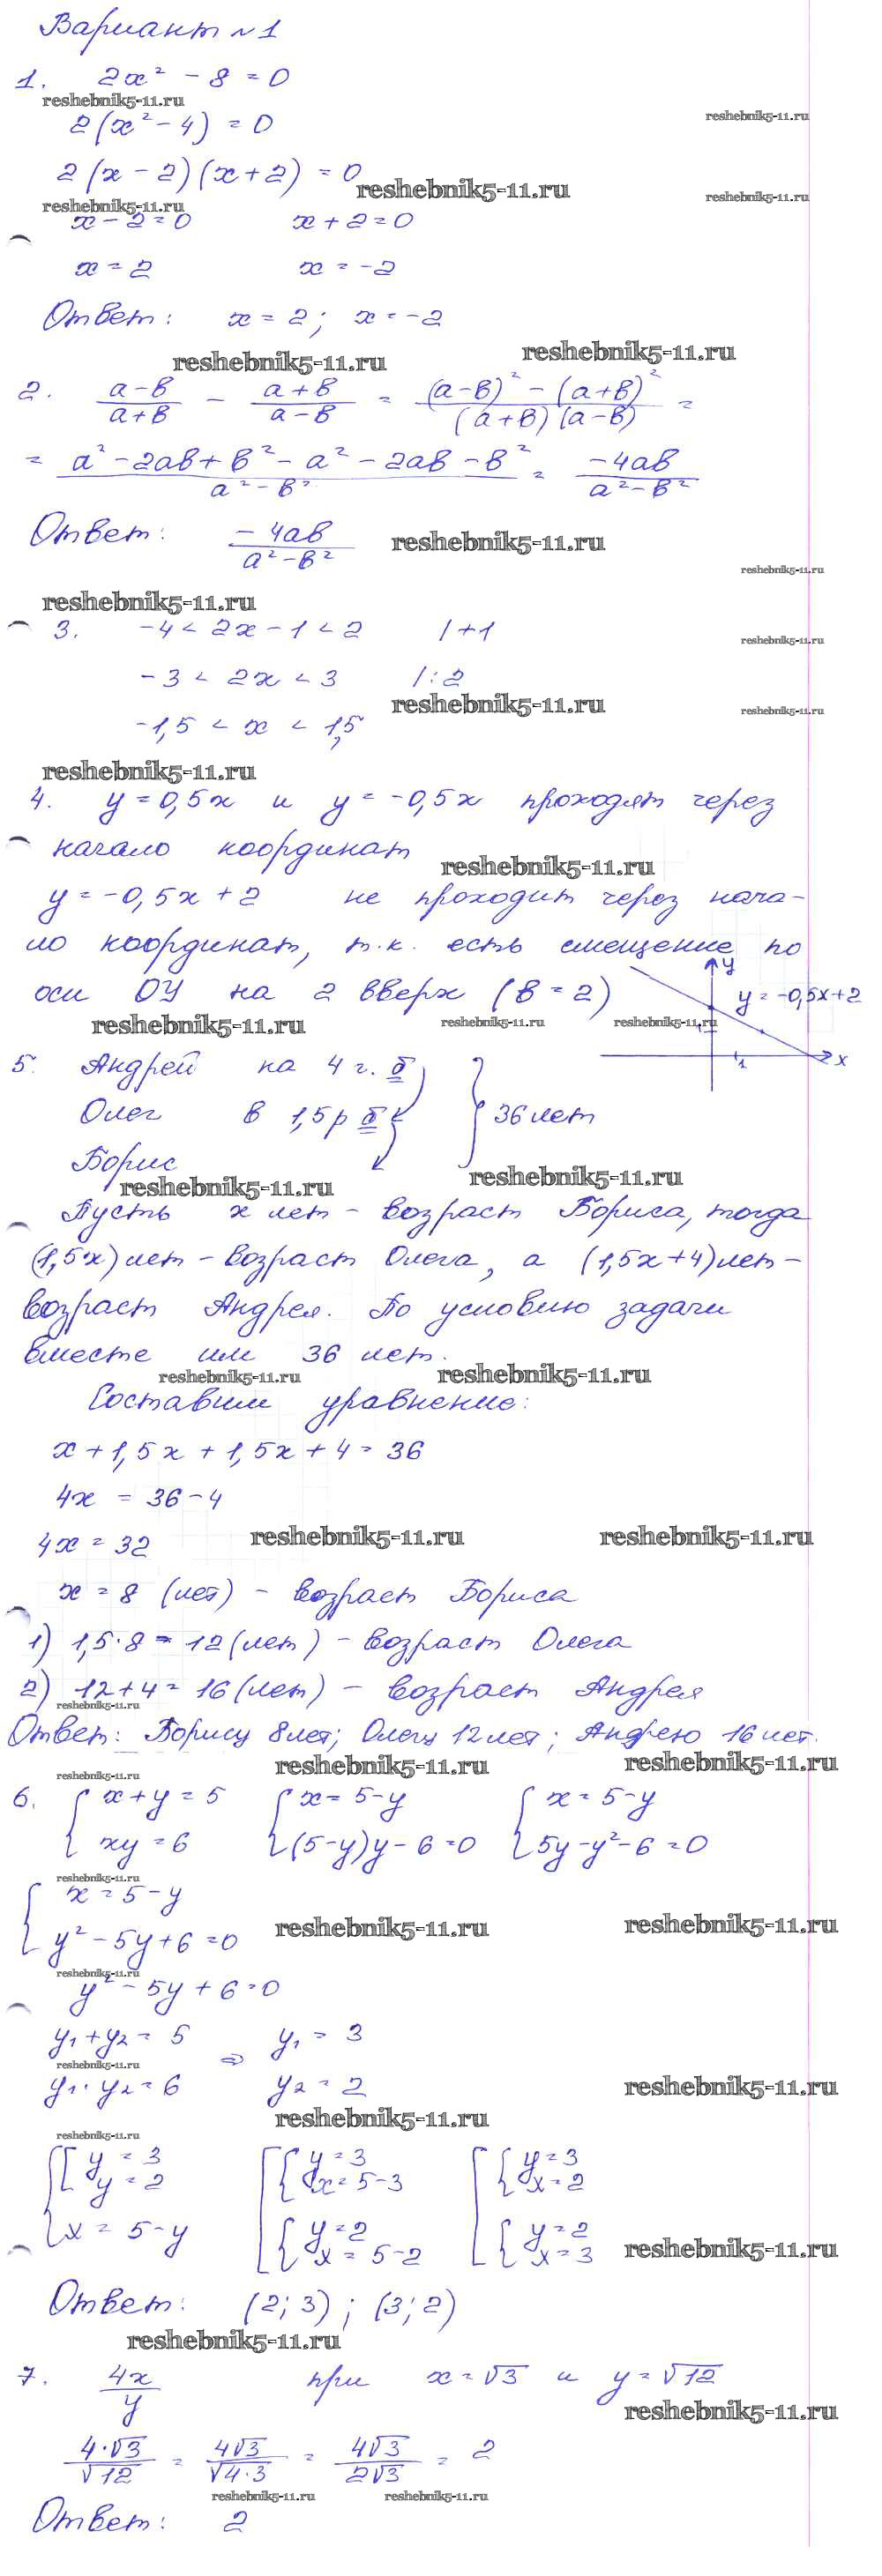 Вариант №1
1. 2x² - 8 = 0
reshebnik5-11.ru
2(x² - 4) = 0
reshebnik5-11.ru
2(x - 2)(x + 2) = 0
reshebnik5-11.ru
reshebnik5-11.ru
reshebnik5-11.ru
x - 2 = 0 x + 2 = 0
x = 2 x = -2
Ответ: x = 2; x = -2
reshebnik5-11.ru
reshebnik5-11.ru
2. (a-b)/(a+b) - (a+b)/(a-b) = ((a-b)² - (a+b)²)/((a+b)(a-b)) =
= (a² - 2ab + b² - a² - 2ab - b²)/(a² - b²) = (-4ab)/(a² - b²)
Ответ: (-4ab)/(a² - b²)
reshebnik5-11.ru
reshebnik5-11.ru
reshebnik5-11.ru
3. -4 < 2x - 1 < 2 | +1
reshebnik5-11.ru
-3 < 2x < 3 | :2
reshebnik5-11.ru
reshebnik5-11.ru
-1,5 < x < 1,5
reshebnik5-11.ru
4. y = 0,5x и y = -0,5x проходят через
начало координат
reshebnik5-11.ru
y = -0,5x + 2 не проходит через нача-
ло координат, т.к. есть смещение по
оси OY на 2 вверх (b = 2)
y
y = -0,5x+2
1
1
x
reshebnik5-11.ru
reshebnik5-11.ru
reshebnik5-11.ru
5. Андрей на 4 г. б
Олег в 1,5 р б
36 лет
Борис
reshebnik5-11.ru
reshebnik5-11.ru
Пусть x лет - возраст Бориса, тогда
(1,5x) лет - возраст Олега, а (1,5x+4) лет -
возраст Андрея. По условию задачи
вместе им 36 лет.
reshebnik5-11.ru
reshebnik5-11.ru
Составим уравнение:
x + 1,5x + 1,5x + 4 = 36
4x = 36 - 4
4x = 32
reshebnik5-11.ru
reshebnik5-11.ru
x = 8 (лет) - возраст Бориса
1) 1,5·8 = 12 (лет) - возраст Олега
2) 12+4 = 16 (лет) - возраст Андрея
reshebnik5-11.ru
Ответ: Борису 8 лет; Олегу 12 лет; Андрею 16 лет.
reshebnik5-11.ru
reshebnik5-11.ru
reshebnik5-11.ru
6. { x+y = 5 { x = 5-y { x = 5-y
xy = 6 (5-y)y - 6 = 0 5y - y² - 6 = 0
reshebnik5-11.ru
{ x = 5 - y
y² - 5y + 6 = 0
reshebnik5-11.ru
reshebnik5-11.ru
reshebnik5-11.ru
y² - 5y + 6 = 0
y₁ + y₂ = 5 ⇒ y₁ = 3
reshebnik5-11.ru
y₁ · y₂ = 6 y₂ = 2
reshebnik5-11.ru
reshebnik5-11.ru
reshebnik5-11.ru
{ [ y = 3 [ { y = 3 [ { y = 3
y = 2 x = 5-3 x = 2
x = 5 - y { y = 2 { y = 2
x = 5-2 x = 3
reshebnik5-11.ru
Ответ: (2; 3); (3; 2)
reshebnik5-11.ru
7. 4x/y при x = √3 и y = √12
reshebnik5-11.ru
(4·√3)/√12 = 4√3/√(4·3) = 4√3/(2√3) = 2
reshebnik5-11.ru
reshebnik5-11.ru
Ответ: 2